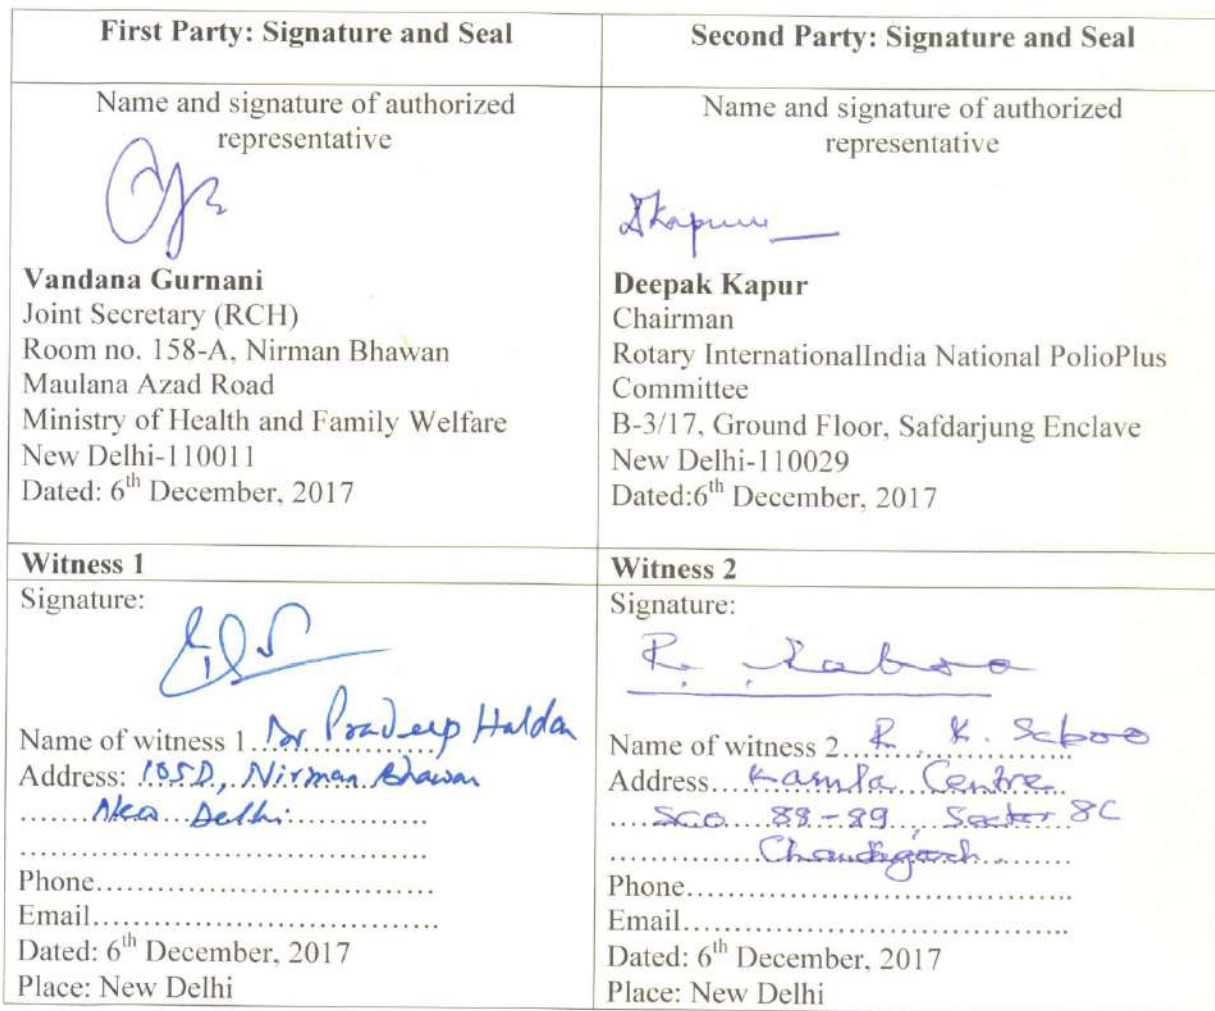 First Party: Signature and Seal
Name and signature of authorized
representative
Vandana Gurnani
Joint Secretary (RCH)
Room no. 158-A, Nirman Bhawan
Maulana Azad Road
Ministry of Health and Family Welfare
New Delhi-110011
Dated: 6th December, 2017
Second Party: Signature and Seal
Name and signature of authorized
representative
DKapur
Deepak Kapur
Chairman
Rotary InternationalIndia National PolioPlus
Committee
B-3/17, Ground Floor, Safdarjung Enclave
New Delhi-110029
Dated:6th December, 2017
Witness 1
Signature:
Name of witness 1 Dr Pradeep Haldar
Address: 105D, Nirman Bhawan
New Delhi
Phone....................................
Email.....................................
Dated: 6th December, 2017
Place: New Delhi
Witness 2
Signature:
R. Saboo
Name of witness 2 R. K. Saboo
Address.... Kamla Centre
SCO 88-89, Sector 8C
Chandigarh.
Phone.........................................
Email.........................................
Dated: 6th December, 2017
Place: New Delhi